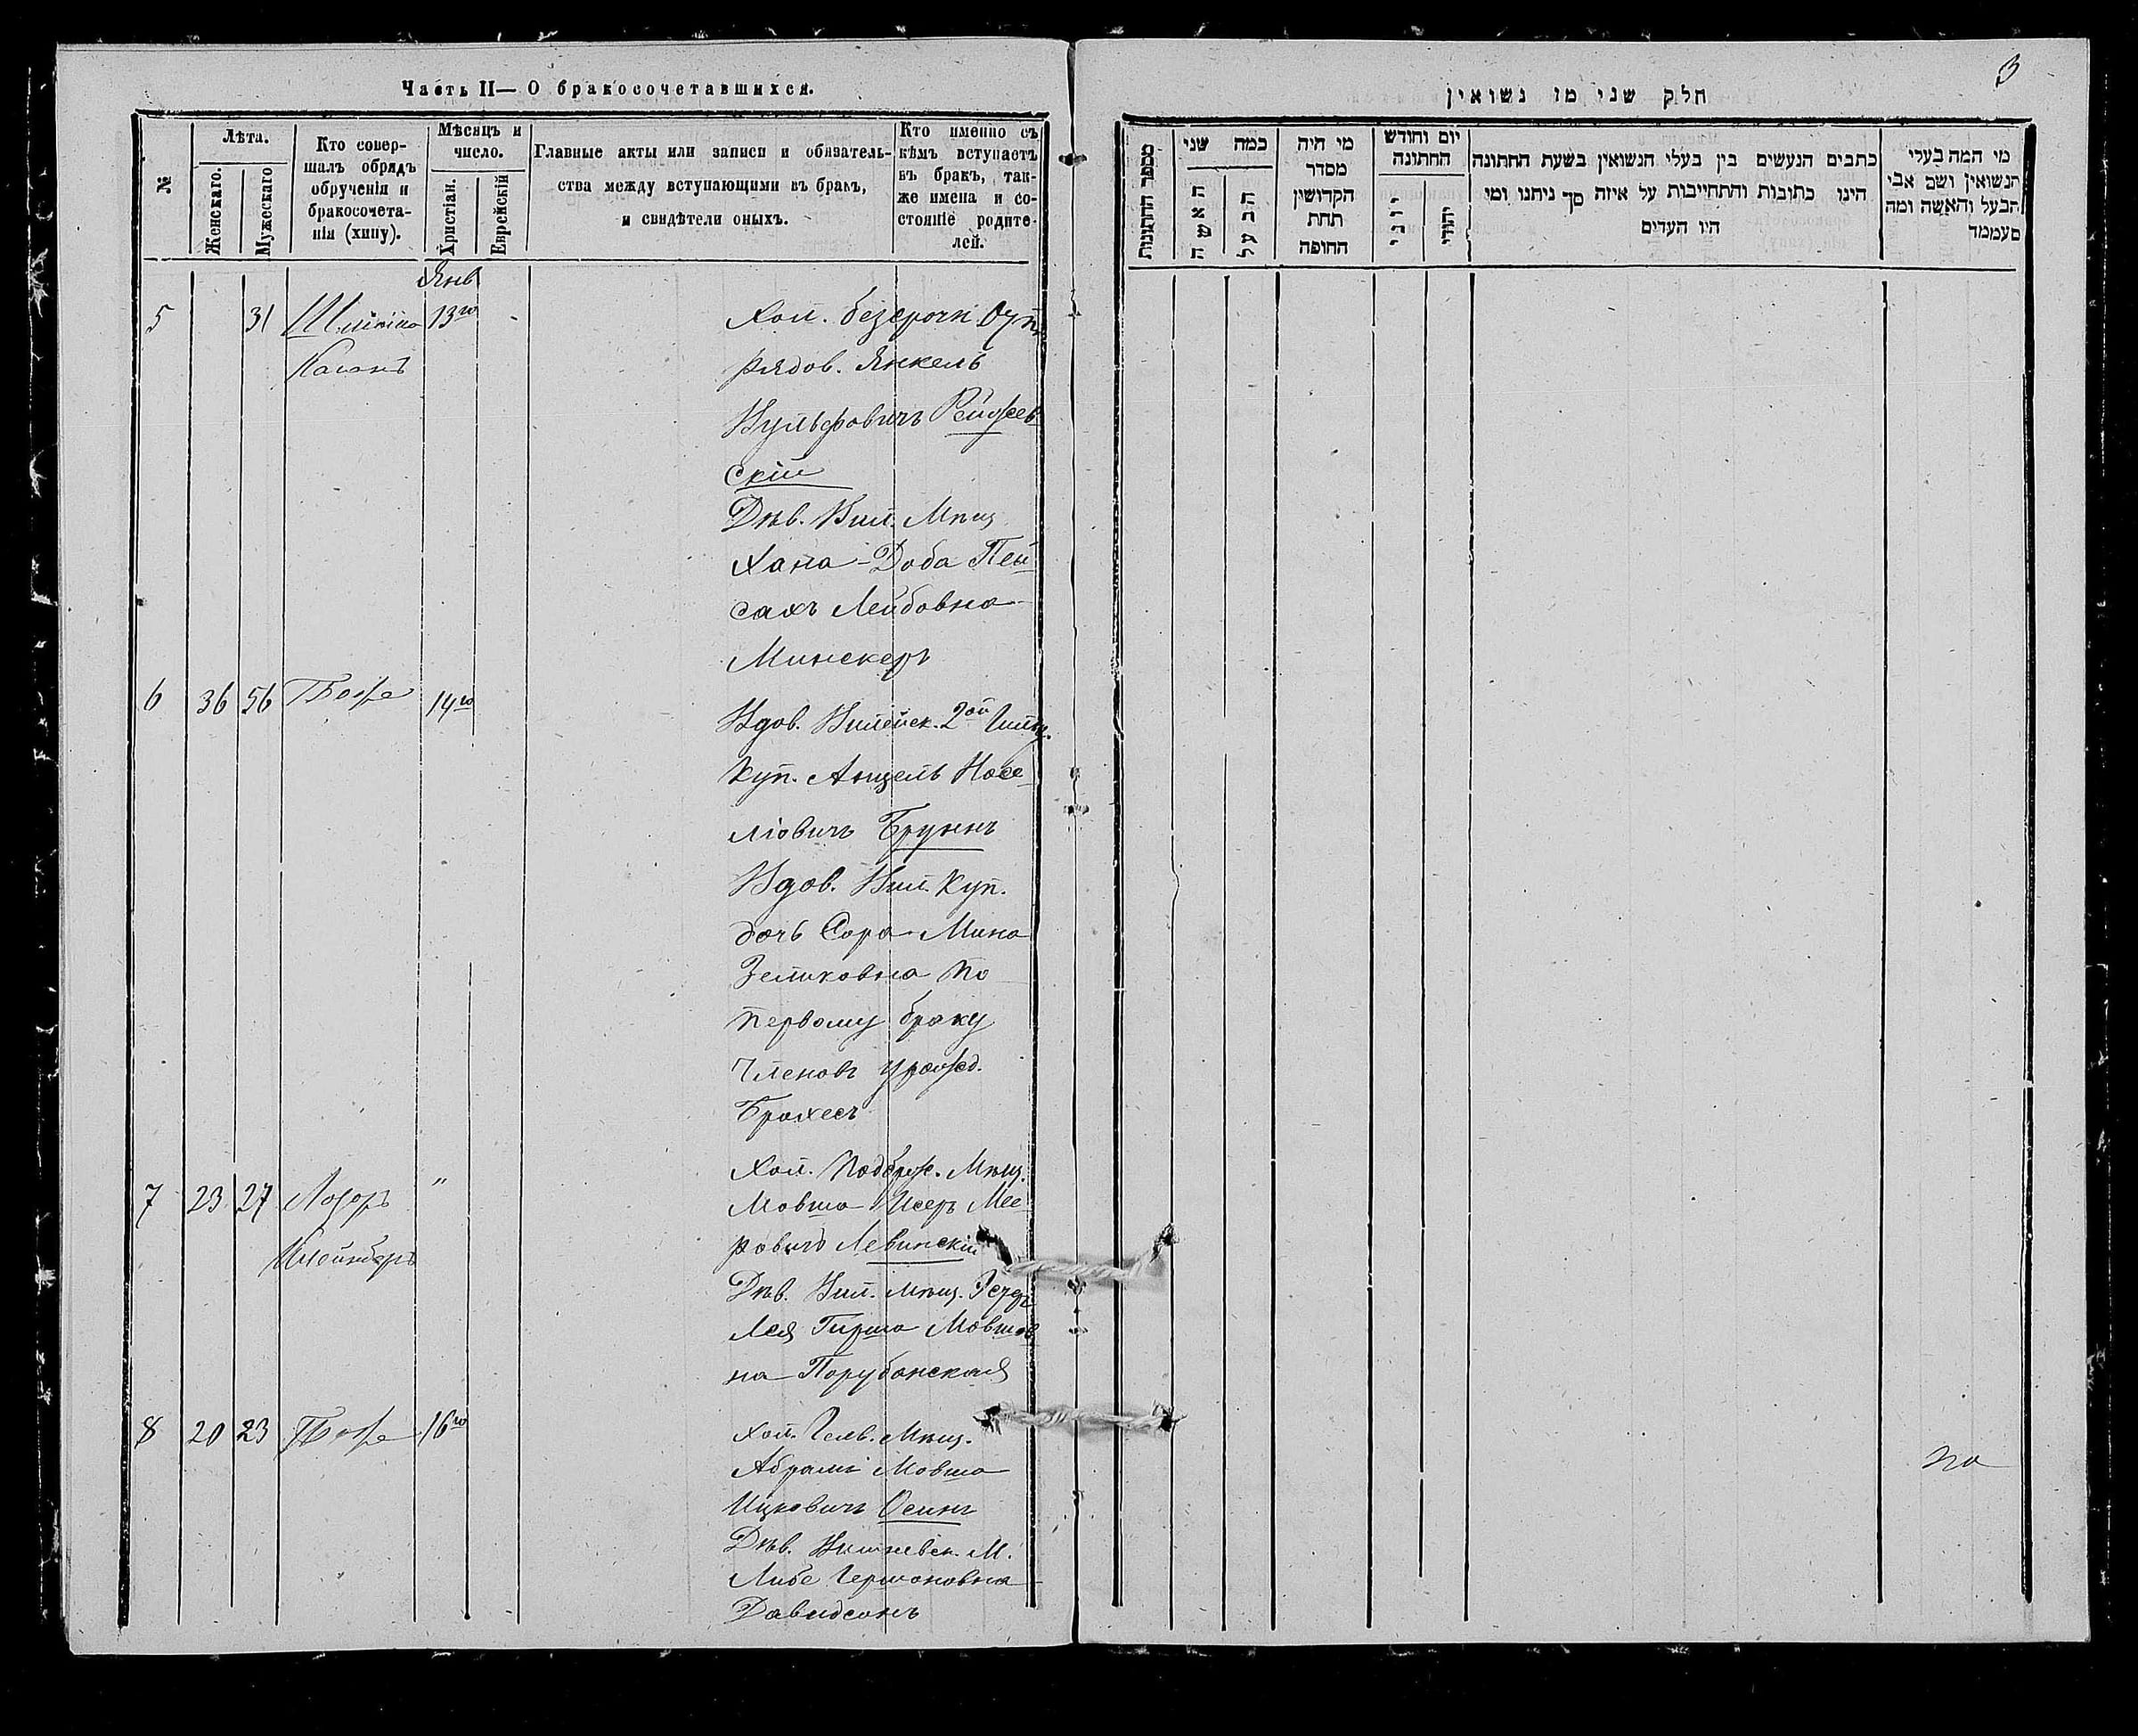 Часть II — О бракосочетавшихся.
№
Лѣта.
Женскаго.
Мужескаго
Кто совер-
шалъ обрядъ
обрученія и
бракосочета-
нія (хипу).
Мѣсяцъ и
число.
Христіан.
Еврейскій
Главные акты или записи и обязатель-
ства между вступающими въ бракъ,
и свидѣтели оныхъ.
Кто именно съ
кѣмъ вступаетъ
въ бракъ, так-
же имена и со-
стояніе родите-
лей.
Янв
5 31 13го Хол. безсрочн.
Каганъ рядов. Янкель
Вульфовичъ
скій
Дѣв. Вил. Мѣщ
Хана-Доба Пей
сахъ Лейбовна
Минскеръ
6 36 56 Тоже 14го
Вдов. Вилейск. 2ой Гильд.
Куп. Анцель
ліовичъ Брукнъ
Вдов. Вил. Куп.
дочь Сора Мина
Зеликовна по
первому браку
Членовъ урожд.
Брахесъ
Хол. Подбреж. Мѣщ.
7 23 27 Лазарь " Мовша Исеръ Мее
ровичъ Левинскій
Дѣв. Вил. мѣщ.
Лея Гирша Мовшов
на Порубанская
8 20 23 Тоже 16го Хол. Мѣщ.
Абрамъ Мовша
Ицковичъ Осинъ
Дѣв. М.
Либе Гершоновна
Давидсонъ
3
חלק שני מן נשואין
מספר החתונות
כמה שני
האשה
הבעל
מי היה
מסדר
הקדושין
תחת
החופה
יום וחודש
החתונה
יוני
יהודי
כתבים הנעשים בין בעלי הנשואין בשעת החתונה
הינו כתובות והתחייבות על איזה סך ניתנו ומי
היו העדים
מי המה בעלי
הנשואין ושם אבי
הבעל והאשה ומה
מעמד
по